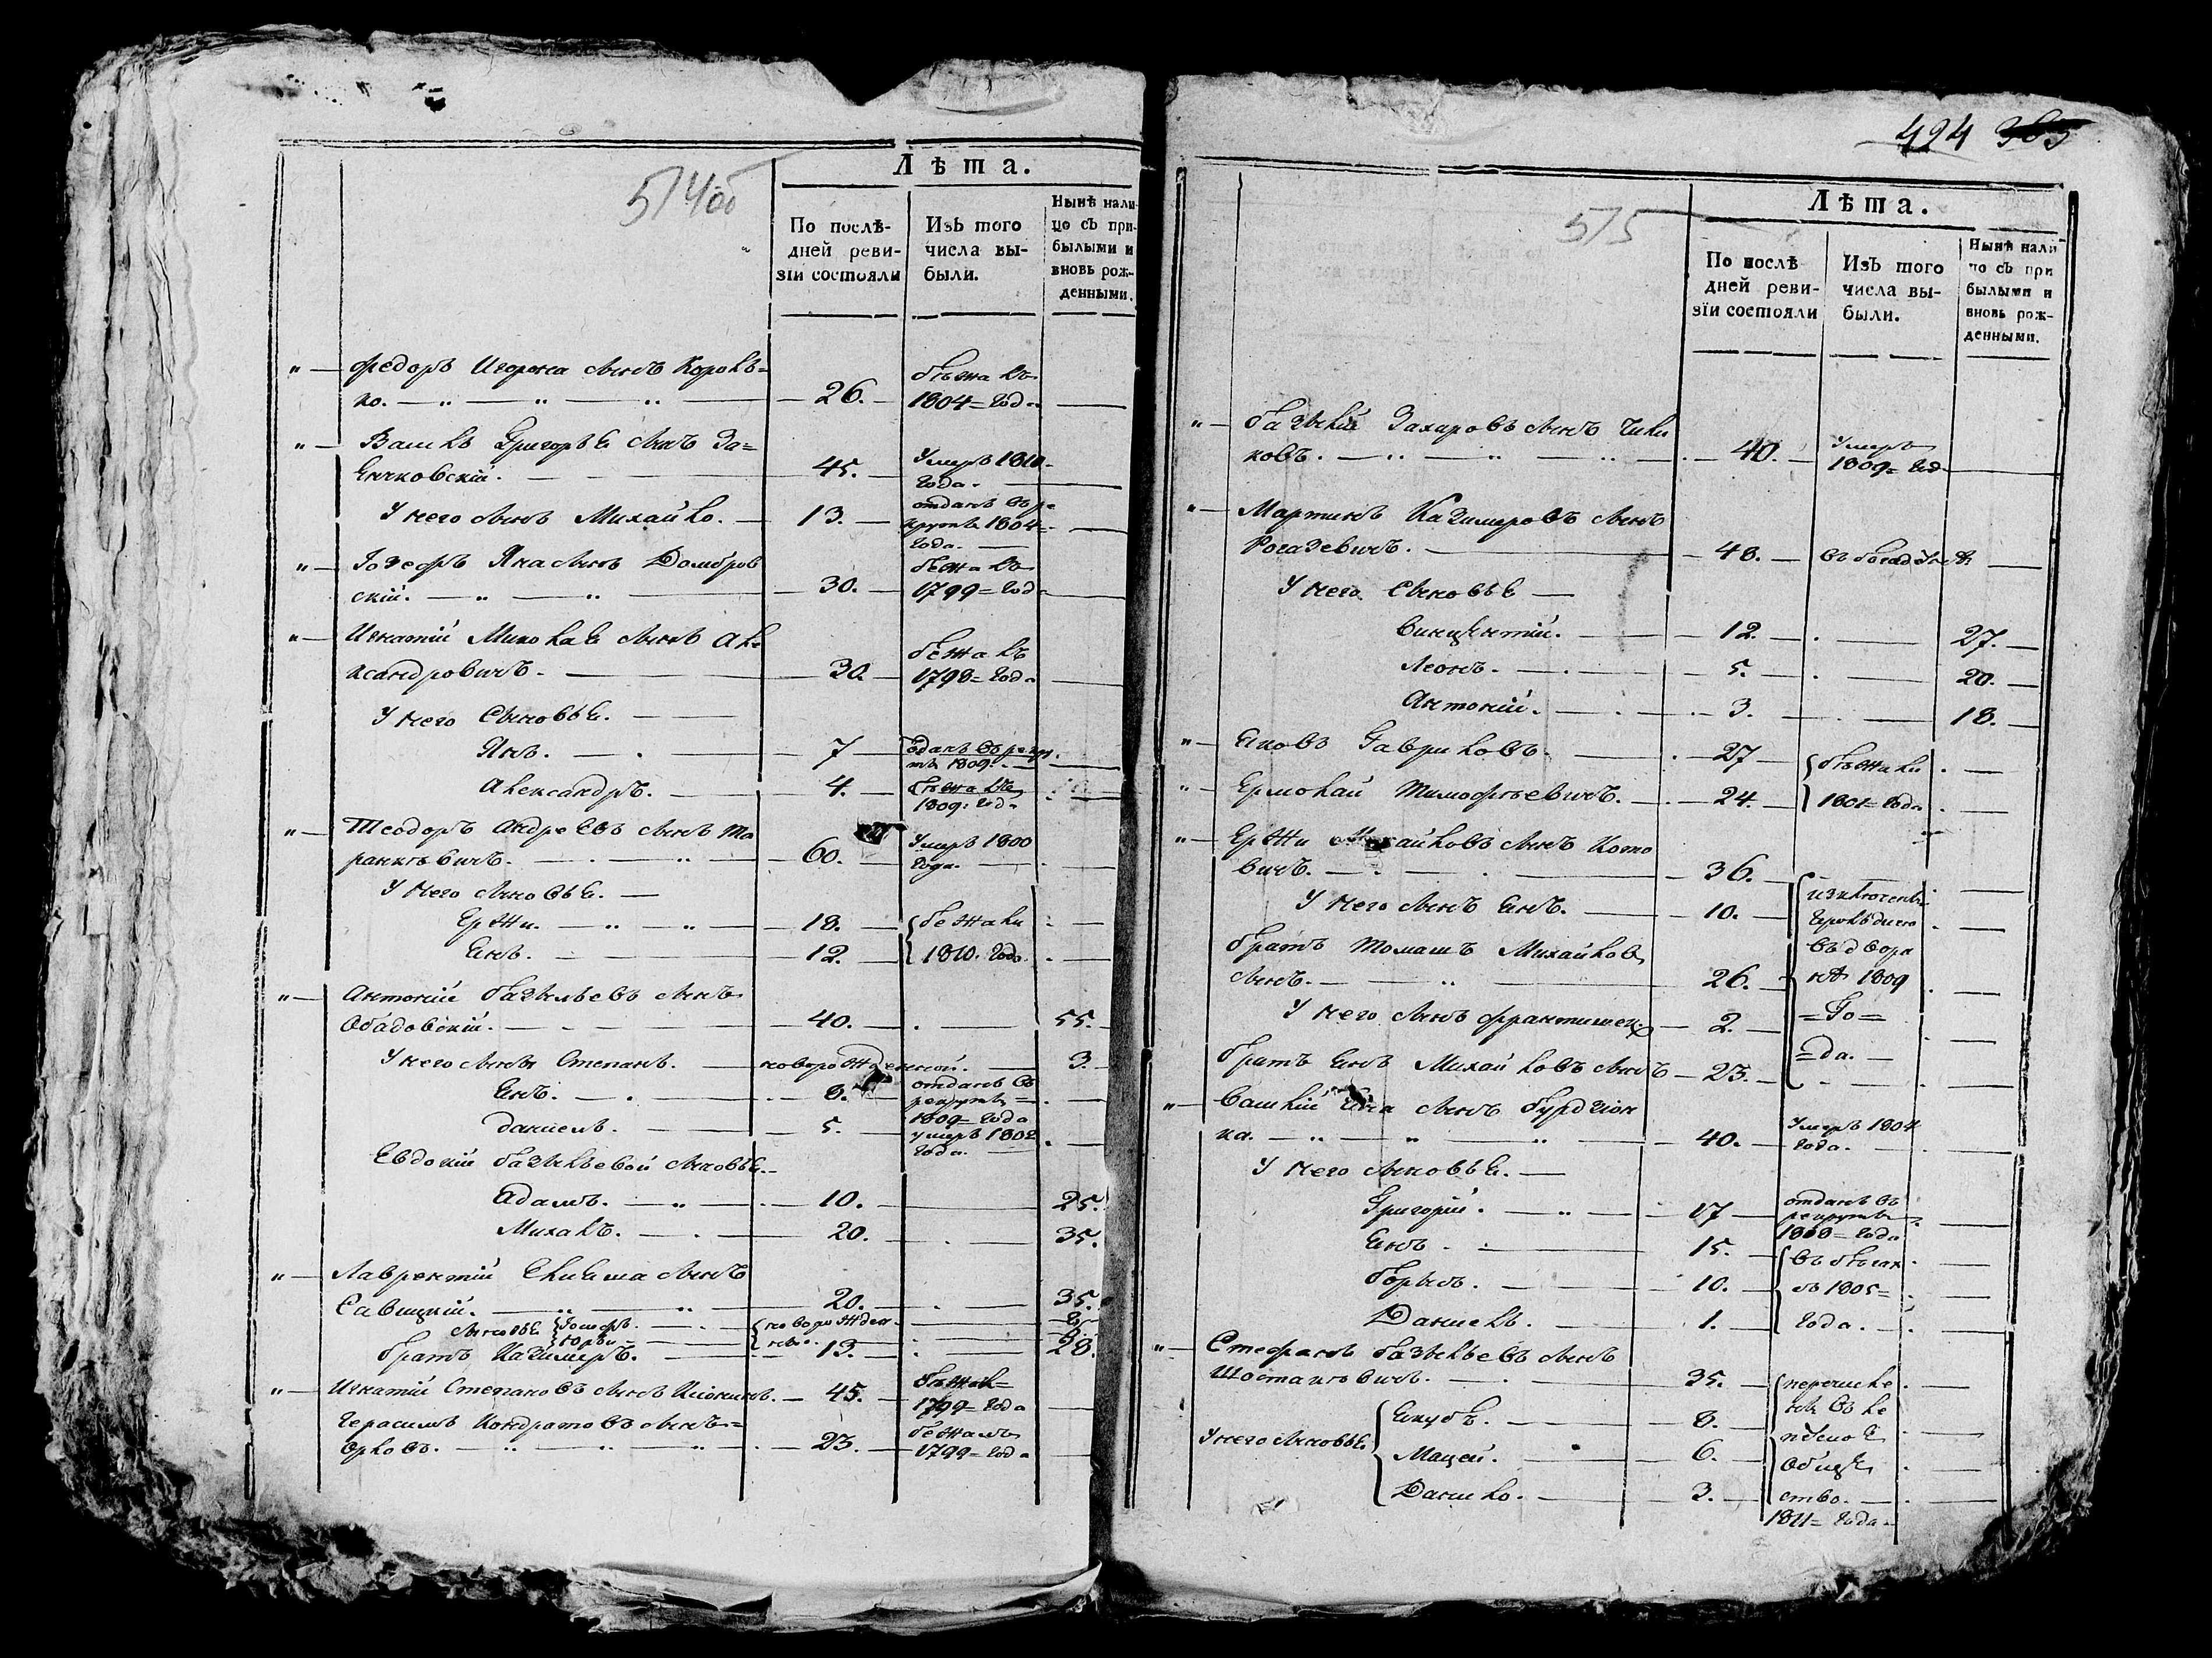 514об
Лѣта.
По послѣ-
дней реви-
зіи состояли
Изъ того
числа вы-
были.
Нынѣ нали-
цо съ при-
былыми и
вновь рож-
денными.
Федоръ Игорка сынъ Король=
ко. 26. бѣжалъ
1804=года
Василь Григорьев сынъ За=
45. Умеръ 1810
года.
У него сынъ Михайло. 13. отданъ въ ре
круты 1804=
года.
Іозефъ Яна сынъ Домбров
скій. 30. бежалъ
1799=года
Игнатій Миколая сынъ Але
ксандровичъ. 30. бежалъ
1798=года
У него сыновья.
Янъ. 7 отданъ въ рекру
ты 1809.
Александръ. 4. бѣжалъ
1809. года
Теодоръ Андреевъ сынъ Та
раннѣвичъ. 60. Умеръ 1800
года.
У него сыновья.
Ержи. 18. бежали
Янъ. 12. 1810. года.
Антоній Базильевъ сынъ
Обадовскій. 40. 55.
У него сынъ Степанъ. новорожденной. 3.
Янъ. 8. отданъ въ
рекруты=
1809=года
Даніель. 5. умеръ 1802
года.
Евдокіи базильевой сыновья.
Адамъ. 10. 25.
Михалъ. 20. 35.
Лаврентій сынъ
Савицкій. 20. 35.
сыновья новорожден
ные.
братъ Казимеръ. 13. 28.
Игнатій Степановъ сынъ 45. бѣжалъ
1799=года
Герасимъ Кондратовъ сынъ=
Орловъ. 23. бежалъ
1799=года
424 365
515
Лѣта.
По послѣ
дней реви-
зіи состояли
Изъ того
числа вы-
были.
Нынѣ нали
цо съ при
былыми и
вновь рож-
денными.
Базылій Захаровъ сынъ Чили
ковъ. 40. Умеръ
1809=года
Мартинъ Казимеровъ сынъ
Рогазевичъ. 48.
У него сыновья
Винцентій. 12. 27.
Леонъ. 5. 20.
Антоній. 3. 18.
Яковъ Гавриловъ. 27 бѣжали
Ермолай Тимофѣевичъ. 24. 1801=года
Ержи Михайловъ сынъ Кото
вичъ. 36.
исключены
У него сынъ Янъ. 10.
братъ Томашъ Михайлов въ дворя
сынъ. 26. не 1809
У него сынъ Франтишек 2. =го=
братъ Янъ Михайловъ сынъ 23. =да.
Васылій Яна сынъ Бурдзіон
ка. 40. Умеръ 1804
года.
У него сыновья.
Григорій. 17 отданъ въ
рекруты
1808=года
Янъ. 15. въ бѣгах
борысъ. 10. съ 1805=
Даніель. 1. года.
Стефанъ базильевъ сынъ
Шостаковичъ. 35. перечисле
ны въ ле
У него сыновья Якубъ. 8.
Мацей. 6. обще
Данило. 3. ство.
1811=года